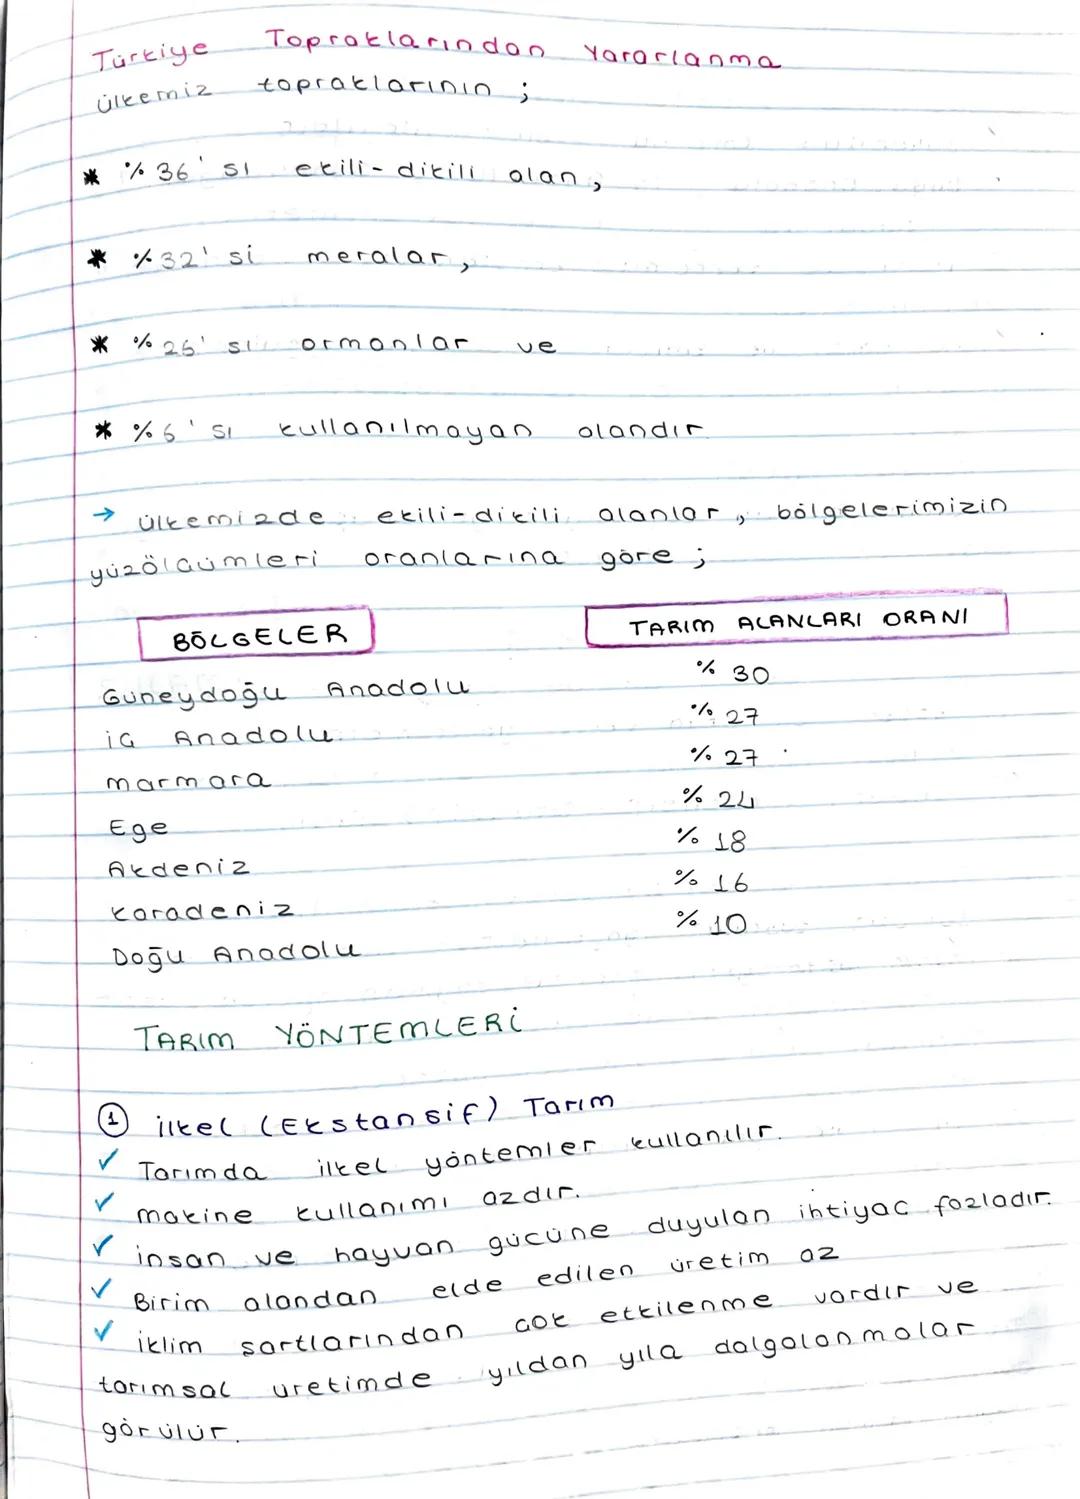 Türkiye Topraklarından Yararlanma
ülkemiz topraklarının ;
* % 36' sı ekili-dikili alan,
* % 32' si meralar,
* % 26' sı ormanlar ve
* % 6' sı kullanılmayan alandır
→ ülkemizde ekili-dikili alanlar, bölgelerimizin
yüzölçümleri oranlarına göre ;
BÖLGELER TARIM ALANLARI ORANI
Güneydoğu Anadolu % 30
iç Anadolu % 27
marmara % 27
Ege % 24
Akdeniz % 18
karadeniz % 16
Doğu Anadolu % 10
TARIM YÖNTEMLERİ
① ilkel (Ekstansif) Tarım
✓ Tarımda ilkel yöntemler kullanılır.
✓ makine kullanımı azdır.
✓ insan ve hayvan gücüne duyulan ihtiyaç fazladır.
✓ Birim alandan elde edilen üretim az
✓ iklim şartlarından çok etkilenme vardır ve
tarımsal üretimde yıldan yıla dalgalanmalar
görülür.